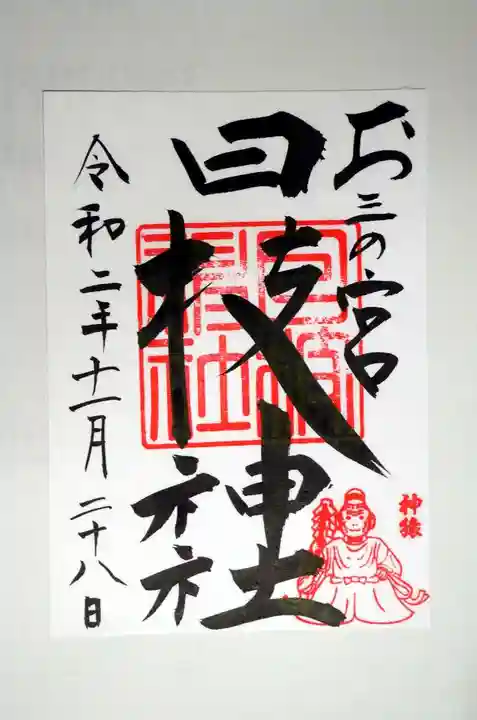 お三の宮
日枝神社
令和二年十一月二十八日
神猿